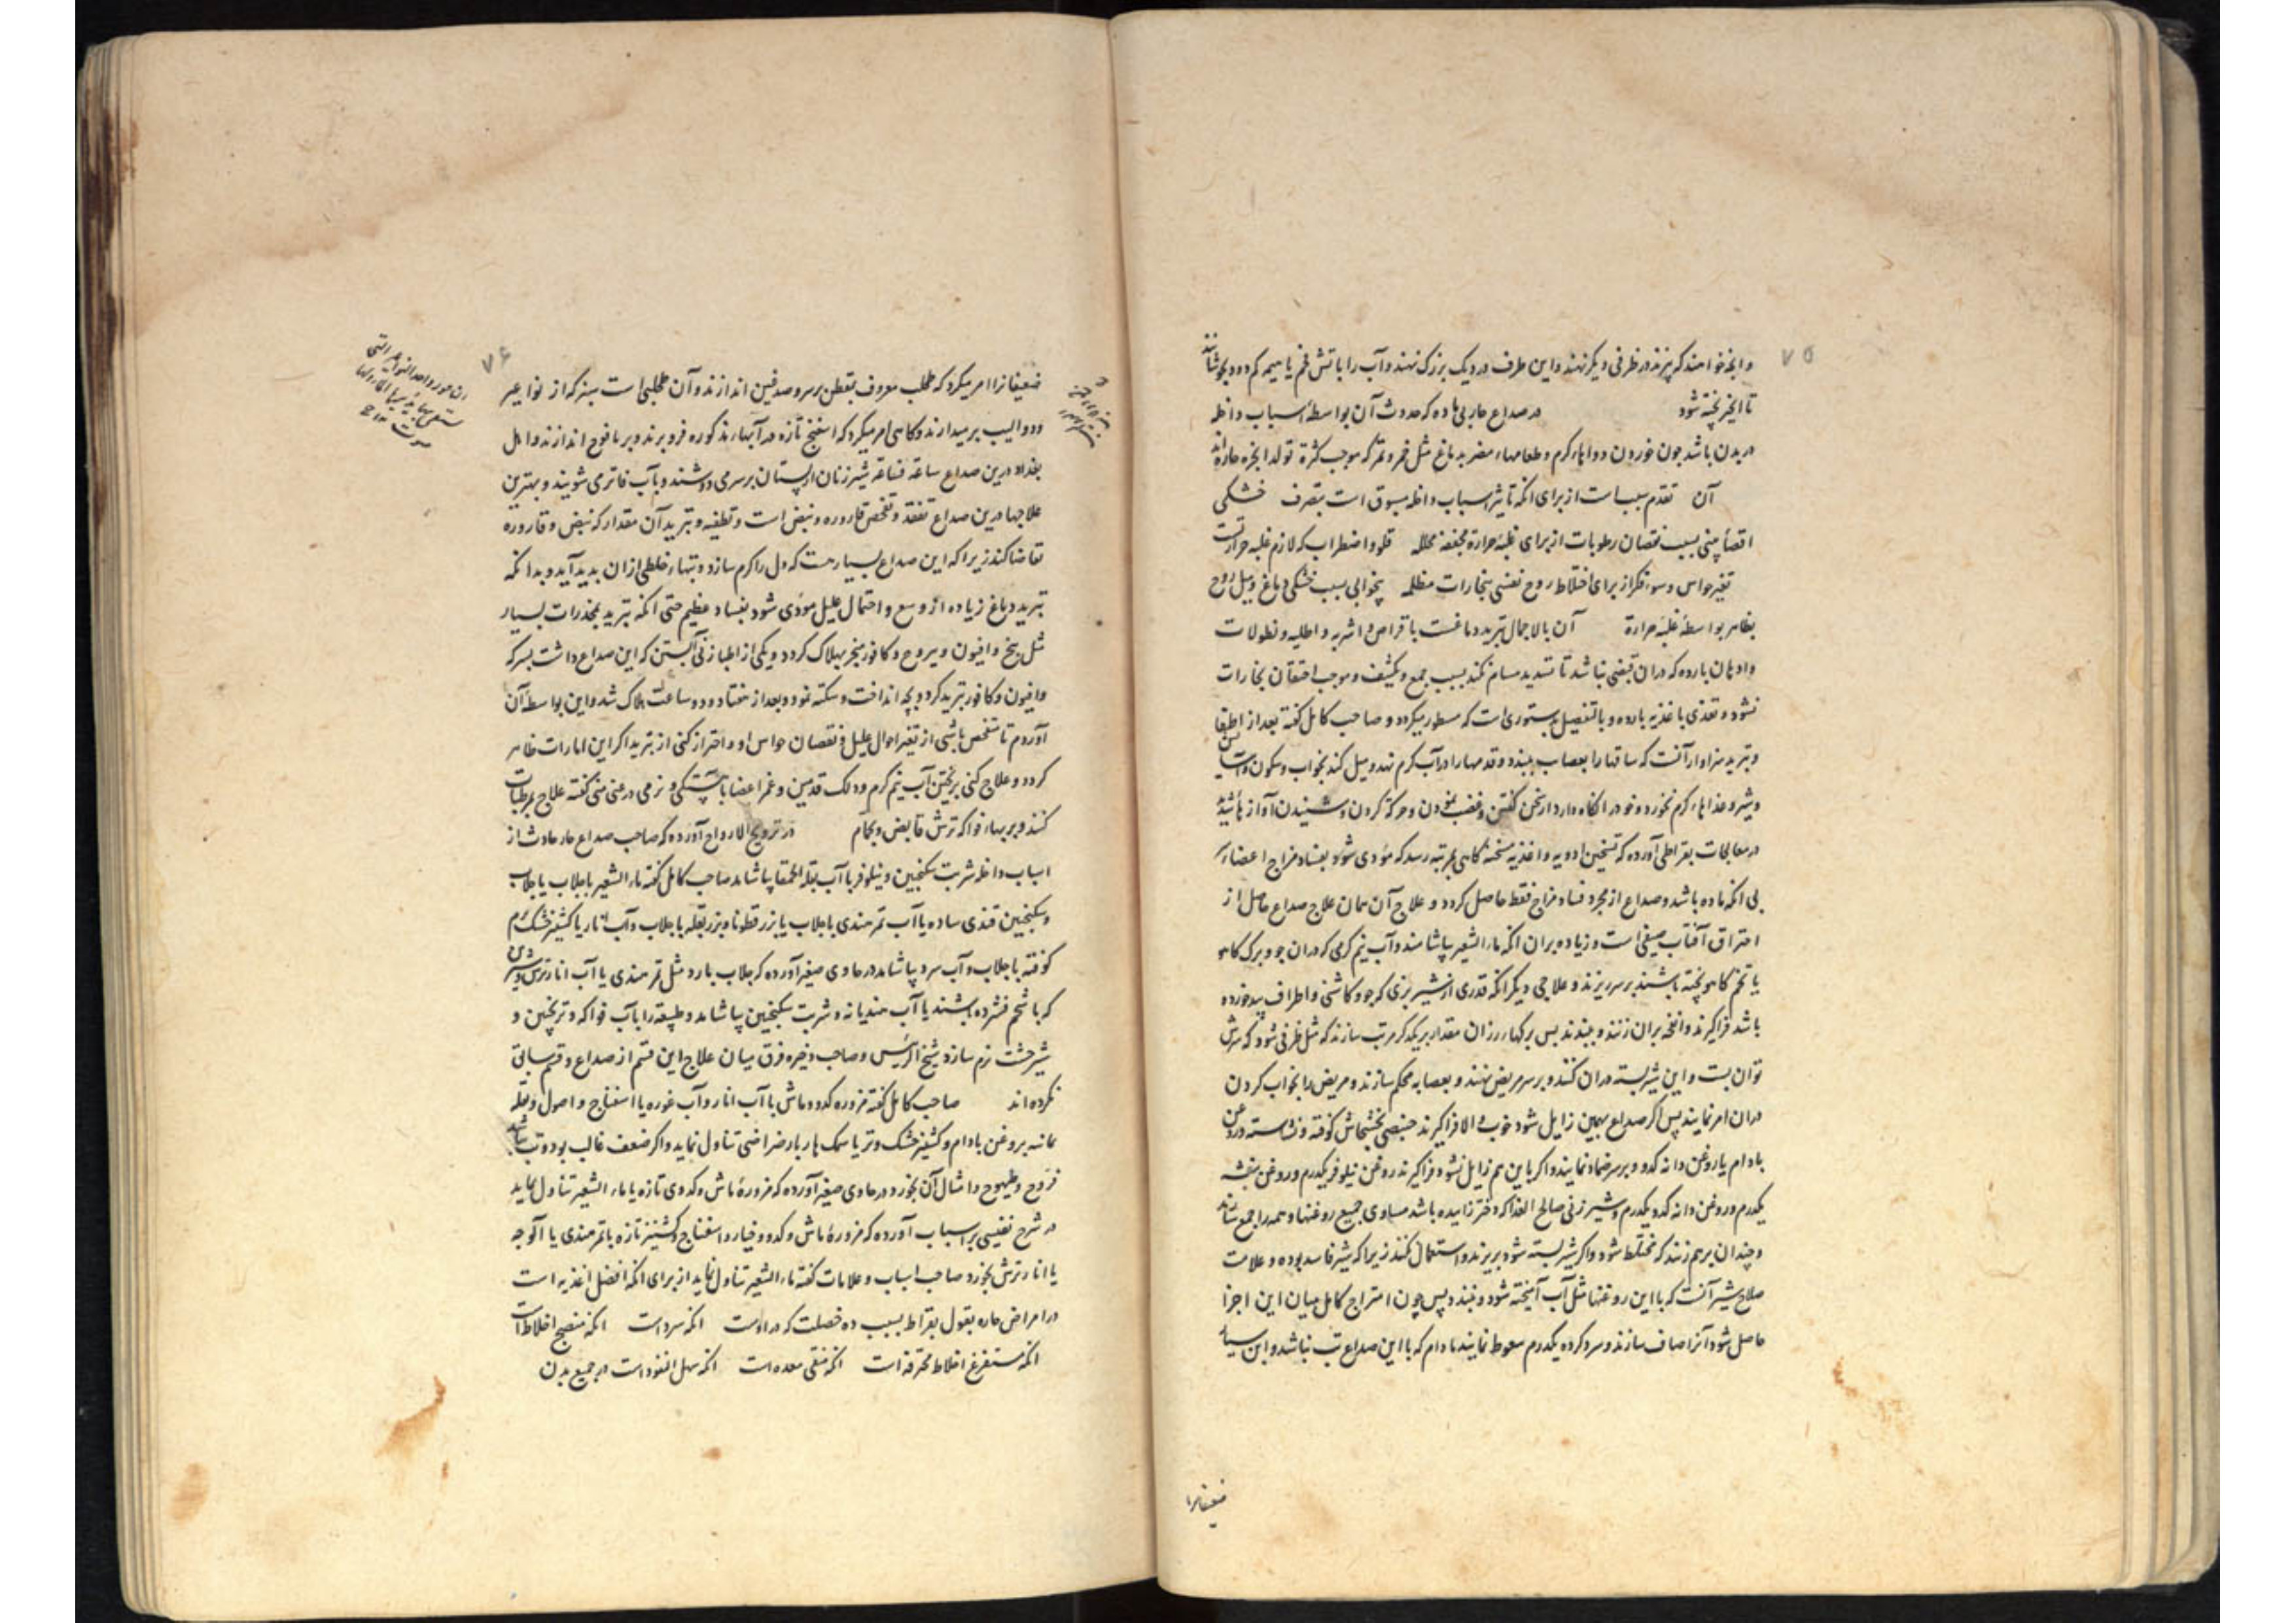 ۷۵
و آنچه خواهند که پزند در ظرفی دیگر نهند و این ظرف در دیک بزرک نهند و آب را باتش فحم یا هیمه کم دود بجوشانند
تا آنچیز پخته شود در صداع حار بی ماده که حدوث آن بواسطهٔ اسباب داخله
در بدن باشد چون خوردن دواهاء کرم و طعامهاء مضر بدماغ مثل خمر و تمر که موجب کثرة تولد ابخره حاره‌اند
آن تقدم سببست از برای انکه تاثیر اسباب داخله مسبوق است بتصرف خشکی
اقصاء بینی بسبب نقصان رطوبات از برای غلبهٔ حرارة مجففه محلله قلق و اضطراب که لازم غلبه حرارتست
تغیر حواس و سوء فکر از برای اختلاط روح نفسی ببخارات مظلمه بیخوابی بسبب خشکی دماغ و میل روح
بظاهر بواسطهٔ غلبهٔ حرارة آن بالاجمال تبرید دماغست باقراص و اشربه و اطلیه و نطولات
و ادهان بارده که دران قبضی نباشد تا تسدید مسام نکند بسبب جمع و تکثیف و موجب احتقان بخارات
نشود و تغذی باغذیه بارده و بالتفصیل بدستوری است که مسطور میکردد و صاحب کامل کفته بعد از اطفا
و تبرید سزاوار آنست که ساقها را بعصاب ببندد و قدمها را در آب کرم نهد و میل کند بخواب و سکون و آسایش
و شیر و غذاهاء کرم نخورد و خود را نکاه دارد از سخن کفتن و غضب نمودن و حرکة کردن و شنیدن آوازهاء شدید
در معالجات بقراطی آورده که تسخین ادویه و اغذیه مسخنه کاهی بمرتبه رسد که مؤدی شود بفساد مزاج اعضاء سر
بی انکه ماده باشد و صداع از مجرد فساد مزاج فقط حاصل کردد و علاج آن همان علاج صداع حاصل از
احتراق آفتاب صیفی است و زیاده بران انکه ماء الشعیر بیاشامند و آب نیم کرمی که دران جو و برک کاهو
یا تخم کاهو پخته باشند بر سر ریزند و علاجی دیکر انکه قدری از شیر بزی که جو و کاشنی و اطراف بید خورده
باشد فراکیرند و انفحه بران زنند و ببندند پس برکهاء رزان مقدار بر یکدکر مرتب سازند که مثل ظرفی شود که سرش
توان بست و این شیر بسته دران کنند و بر سر مریض نهند و بعصابه محکم سازند و مریض را بخواب کردن
دران امر نمایند پس اکر صداع بهمین زایل شود خوب و الا فراکیرند خبیصی بخشخاش کوفته و نشاسته در روغن
بادام یا روغن دانه کدو و بر سر ضماد نمایند و اکر باین هم زایل نشود فراکیرند روغن نیلوفر یکدرم و روغن بنفشه
یکدرم و روغن دانه کدو یکدرم و شیر زنی صالح الغذا که دختر زائیده باشد مساوی جمیع روغنها و همه را جمع سازند
و چندان برهم زنند که مختلط شود و اکر شیر بسته شود بریزند و استعمال نکنند زیرا که شیر فاسد بوده و علامت
صلاح شیر آنست که با این روغنها مثل آب آمیخته شود و نبندد پس چون امتزاج کامل میان این اجزا
حاصل شود آنرا صاف سازند و سرد کرده یکدرم سعوط نمایند مادام که با این صداع تب نباشد و ابن سیار
ضعیفانرا
۷۶
ضعیفانرا امر میکرد که طحلب معروف بقطن بر سر و صدغین اندازند و آن طحلبی است سبز که از نواعیر
و دوالیب بر میدارند و کاهی امر میکرد که اسفنج تازه در آبهاء مذکوره فرو برند و بر یافوخ اندازند و اهل
بغداد درین صداع ساعة فساعة شیر زنان از پستان بر سر می دوشند و بآب فاتر می شویند و بهترین
علاجها درین صداع تفقد و تفحص قاروره و نبض است و تطفیه و تبرید آن مقدار که نبض و قاروره
تقاضا کند زیرا که این صداع بسیارست که دل را کرم سازد و تبهاء خلطی ازان پدید آید و بدانکه
تبرید دماغ زیاده از وسع و احتمال علیل مؤدی شود بفساد عظیم حتی انکه تبرید بمخدرات بسیار
مثل بنج و افیون و یبروج و کافور منجر بهلاک کردد و یکی از اطبا زنی آبستن که این صداع داشت بسرکه
و افیون و کافور تبرید کرد و بچه انداخت و سکته نمود و بعد از هفتاد و دو ساعت هلاک شد و این بواسطهٔ آن
آوردم تا متفحص باشی از تغیر احوال علیل و نقصان حواس او و احتراز کنی از تبرید اکر این امارات ظاهر
کردد و علاج کنی بریختن آب نیم کرم و دلک قدمین و غمز اعضا باهستکی و نرمی در غنی منی کفته علاج بمرطبات
کنند و بربهاء فواکه ترش قابض و بحمام در ترویح الارواح آورده که صاحب صداع حار حادث از
اسباب داخله شربت سکنجبین و نیلوفر با آب بقلة الحمقا بیاشامد صاحب کامل کفته ماء الشعیر بجلاب یا جلاب
و سکنجبین قندی ساده یا آب تمر هندی باجلاب یا بزر قطونا و بزر بقله باجلاب و آب انار یا کشنیز خشک نرم
کوفته باجلاب و آب سرد بیاشامد در حاوی صغیر آورده که جلاب بارد مثل تمر هندی یا آب انار ترش و شیرین
که با شحم فشرده باشند یا آب هندیانه و شربت سکنجبین بیاشامد و طبیعة را بآب فواکه و ترنجبین و
شیرخشت نرم سازد و شیخ الرئیس و صاحب ذخیره فرق میان علاج این قسم از صداع و قسم سابق
نکرده‌اند صاحب کامل کفته مزوره کدو و ماش با آب انار و آب غوره یا اسفناج و اصول و بقله
یمانیه بروغن بادام و کشنیز خشک و تر یا سمک هاربا رضراضی تناول نماید و اکر ضعف غالب بود و تب نباشد
فروج و طیهوج و امثال آن بخورد در حاوی صغیر آورده که مزورهٔ ماش و کدوی تازه یا ماء الشعیر تناول نماید
در شرح نفیسی بر اسباب آورده که مزورهٔ ماش و کدو و خیار و اسفناج و کشنیز تازه با تمر هندی یا آلوچه
یا انار ترش بخورد و صاحب اسباب و علامات کفته ماء الشعیر تناول نماید از برای انکه افضل اغذیه است
در امراض حاره بقول بقراط بسبب ده خصلت که در اوست انکه سرد است انکه منضج اخلاط است
انکه مستفرغ اخلاط محترقه است انکه منقی معده است انکه سهل النفوذ است در جمیع بدن